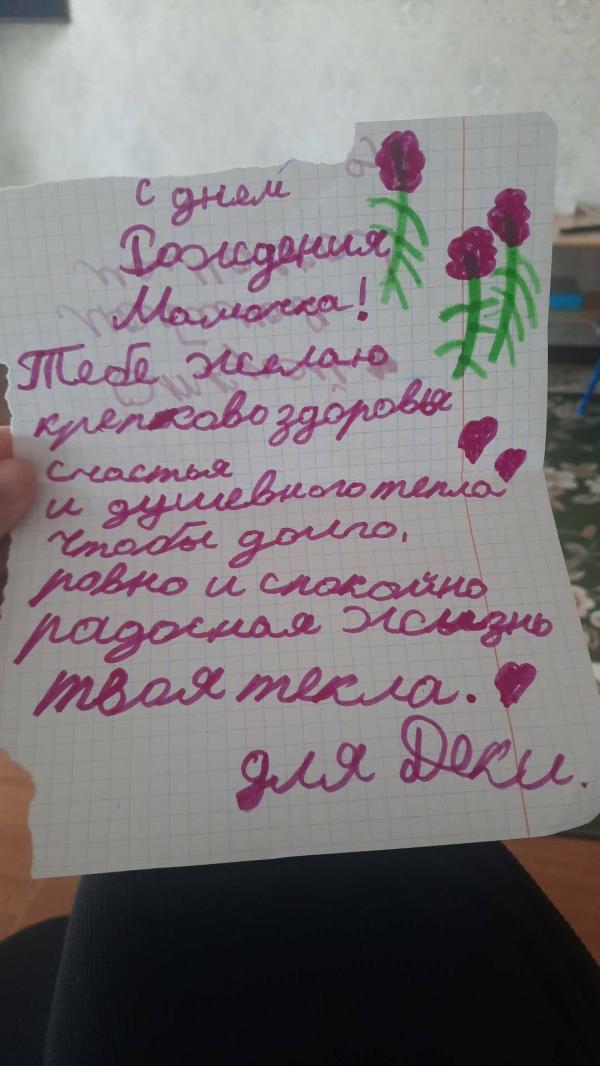 с днем
Рождения
Мамочка!
Тебе желаю
крепково здоровья
счастья
и душевного тепла
чтобы долго,
ровно и спокойно
радосная жизнь
твоя текла.
для Деки.